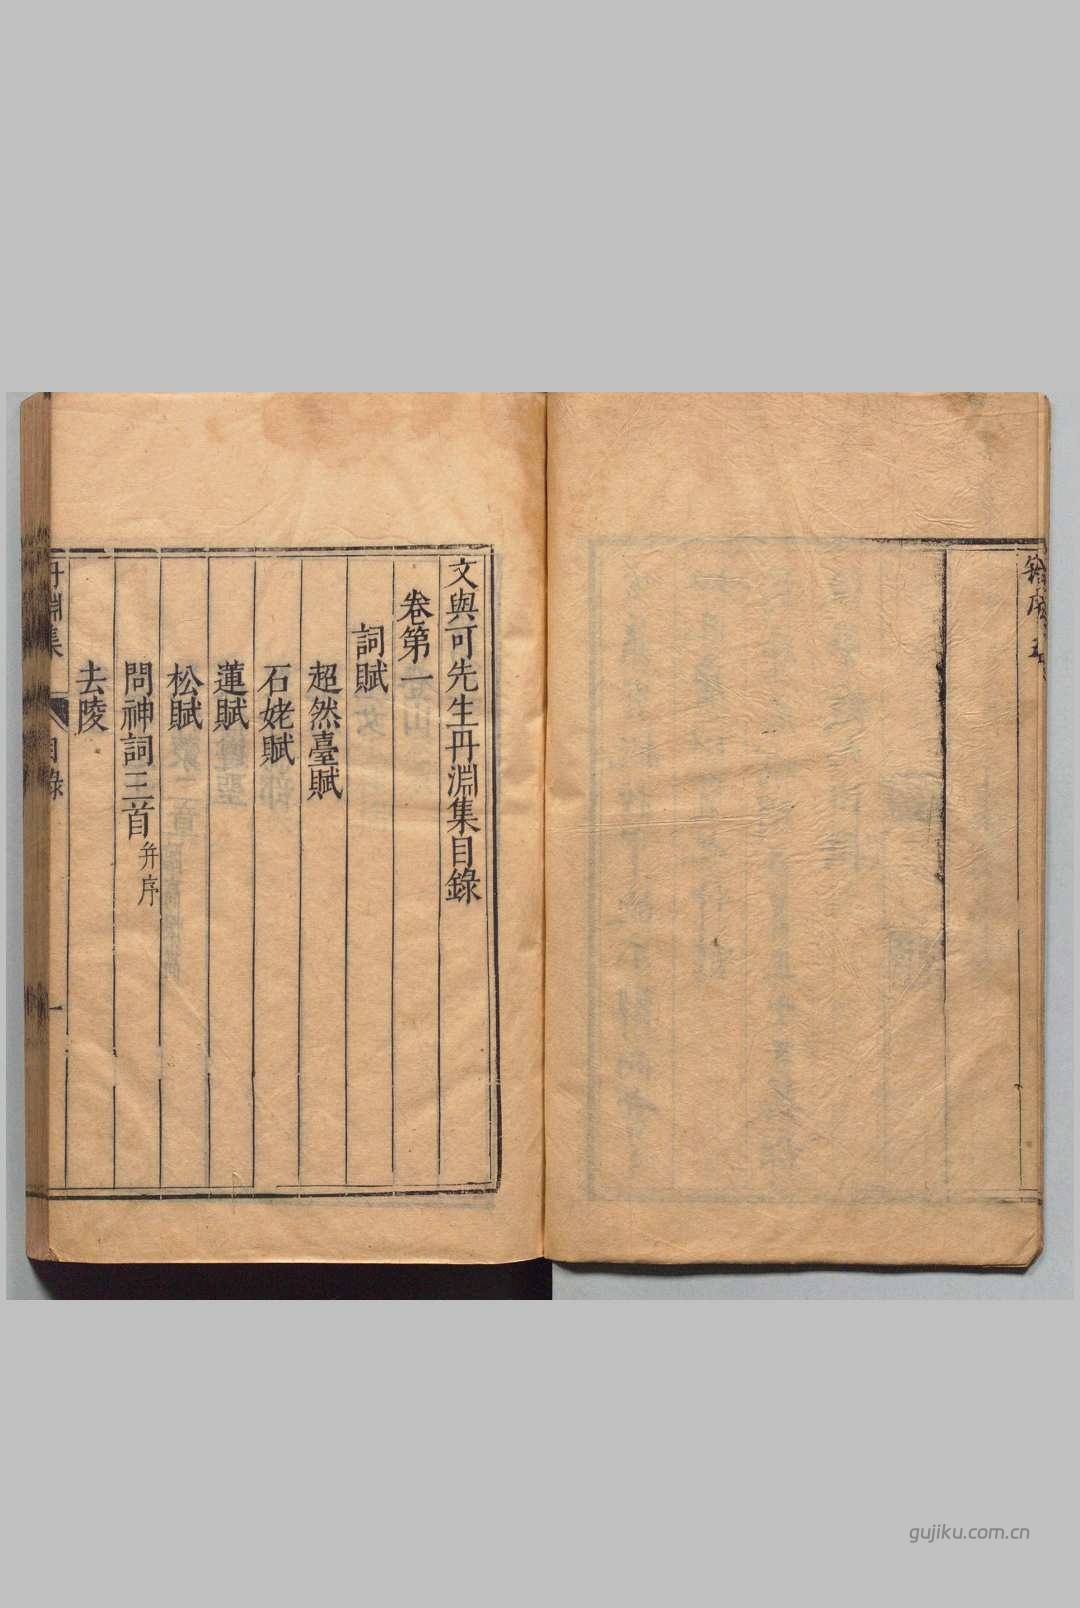 文與可先生丹淵集目錄
卷第一
詞賦
超然臺賦
石姥賦
蓮賦
松賦
問神詞三首并序
去陵
丹淵集 目錄 一
gujiku.com.cn